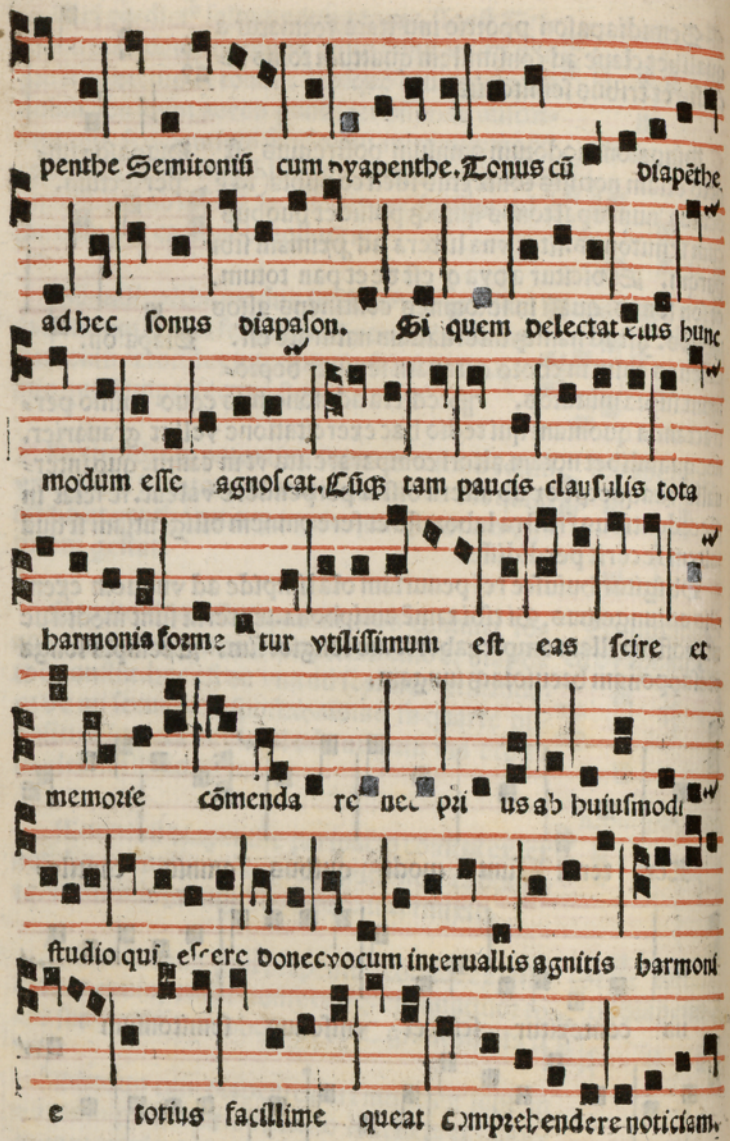 penthe Semitoniū cum dyapenthe. Tonus cū diapēthe
ad hec sonus diapason. Si quem delectat eius hunc
modum esse agnoscat. Cūqꝫ tam paucis clausulis tota
harmonia forme tur vtilissimum est eas scire et
memorie cōmenda re nec pri us ab huiusmodi
studio qui escere donec vocum interuallis agnitis harmoni
e totius facillime queat comprehendere noticiam.